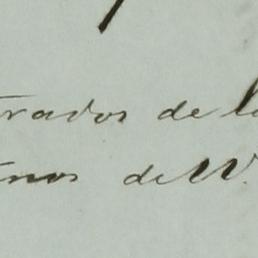 trados de la
inos de W.